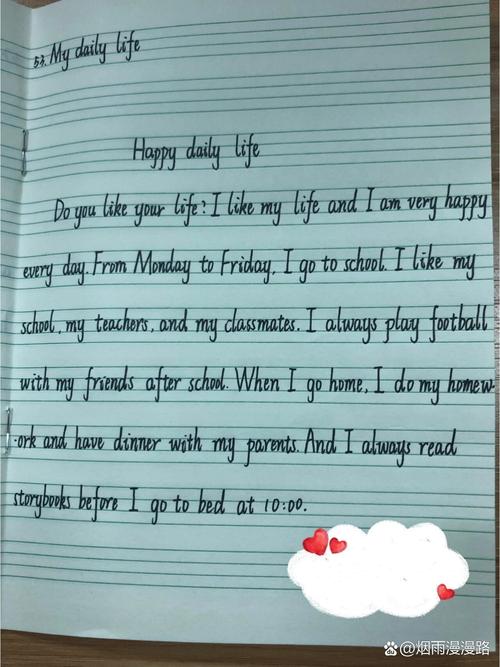 53. My daily life
Happy daily life
Do you like your life? I like my life and I am very happy
every day. From Monday to Friday, I go to school. I like my
school, my teachers, and my classmates. I always play football
with my friends after school. When I go home, I do my homew-
-ork and have dinner with my parents. And I always read
storybooks before I go to bed at 10:00.
@烟雨漫漫路